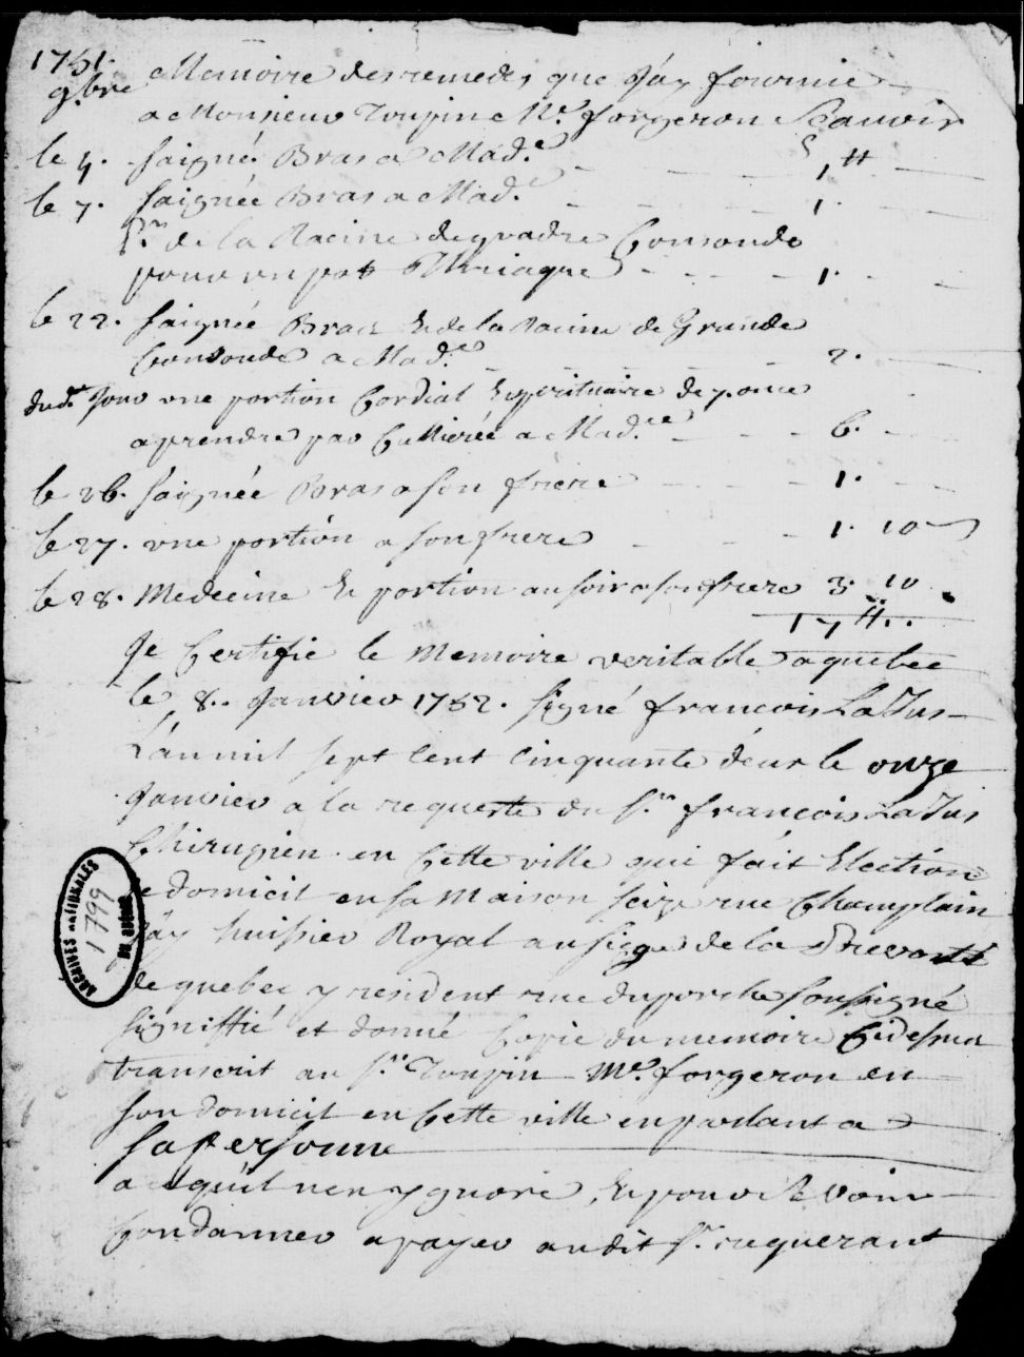 1751.
9bre Memoire des remedes que J'ay fournie
a Monsieur Toupin Me. forgeron Scavoir
le 4. saigné Bras a Made. 1 ₶
le 7. saignée Bras a Made. 1.
Pr. de la Racine de gradre Consoude
pour un pot 1.
le 22. saignée Bras Et de la Racine de Grande
Consoude a Made. 2.
dudt. Jour une portion Cordial de
a prendre par Cuilleréé a Made. 6.
le 26. saignée Bras a son frere 1.
le 27. une portion a son frere 1. 10
le 28. Medecine Et portion au soir a son frere 3. 10
17 ₶..
Je Certifie le Memoire veritable a quebec
le 8.. Janvier 1752. signé francois LaJus
L'an mil sept Cent Cinquante deux le onze
Janvier a la requeste du Sr. francois LaJus
Chirugien en Cette ville qui fait Election
de domicil en sa Maison size rue Champlain
J'ay huissier Royal au siege de la Prevosté
de quebec y resident rue duporche soussigné
signiffié et donné Copie du memoire Cidessus
transcrit au Sr. Toupin Me. forgeron en
son domicil en Cette ville en parlant a
sa personne
a ce quil n'en ygnore, Et pour se voir
Condanner a payer audit Sr. requerant
ARCHIVES NATIONALES
1799
DU QUÉBEC